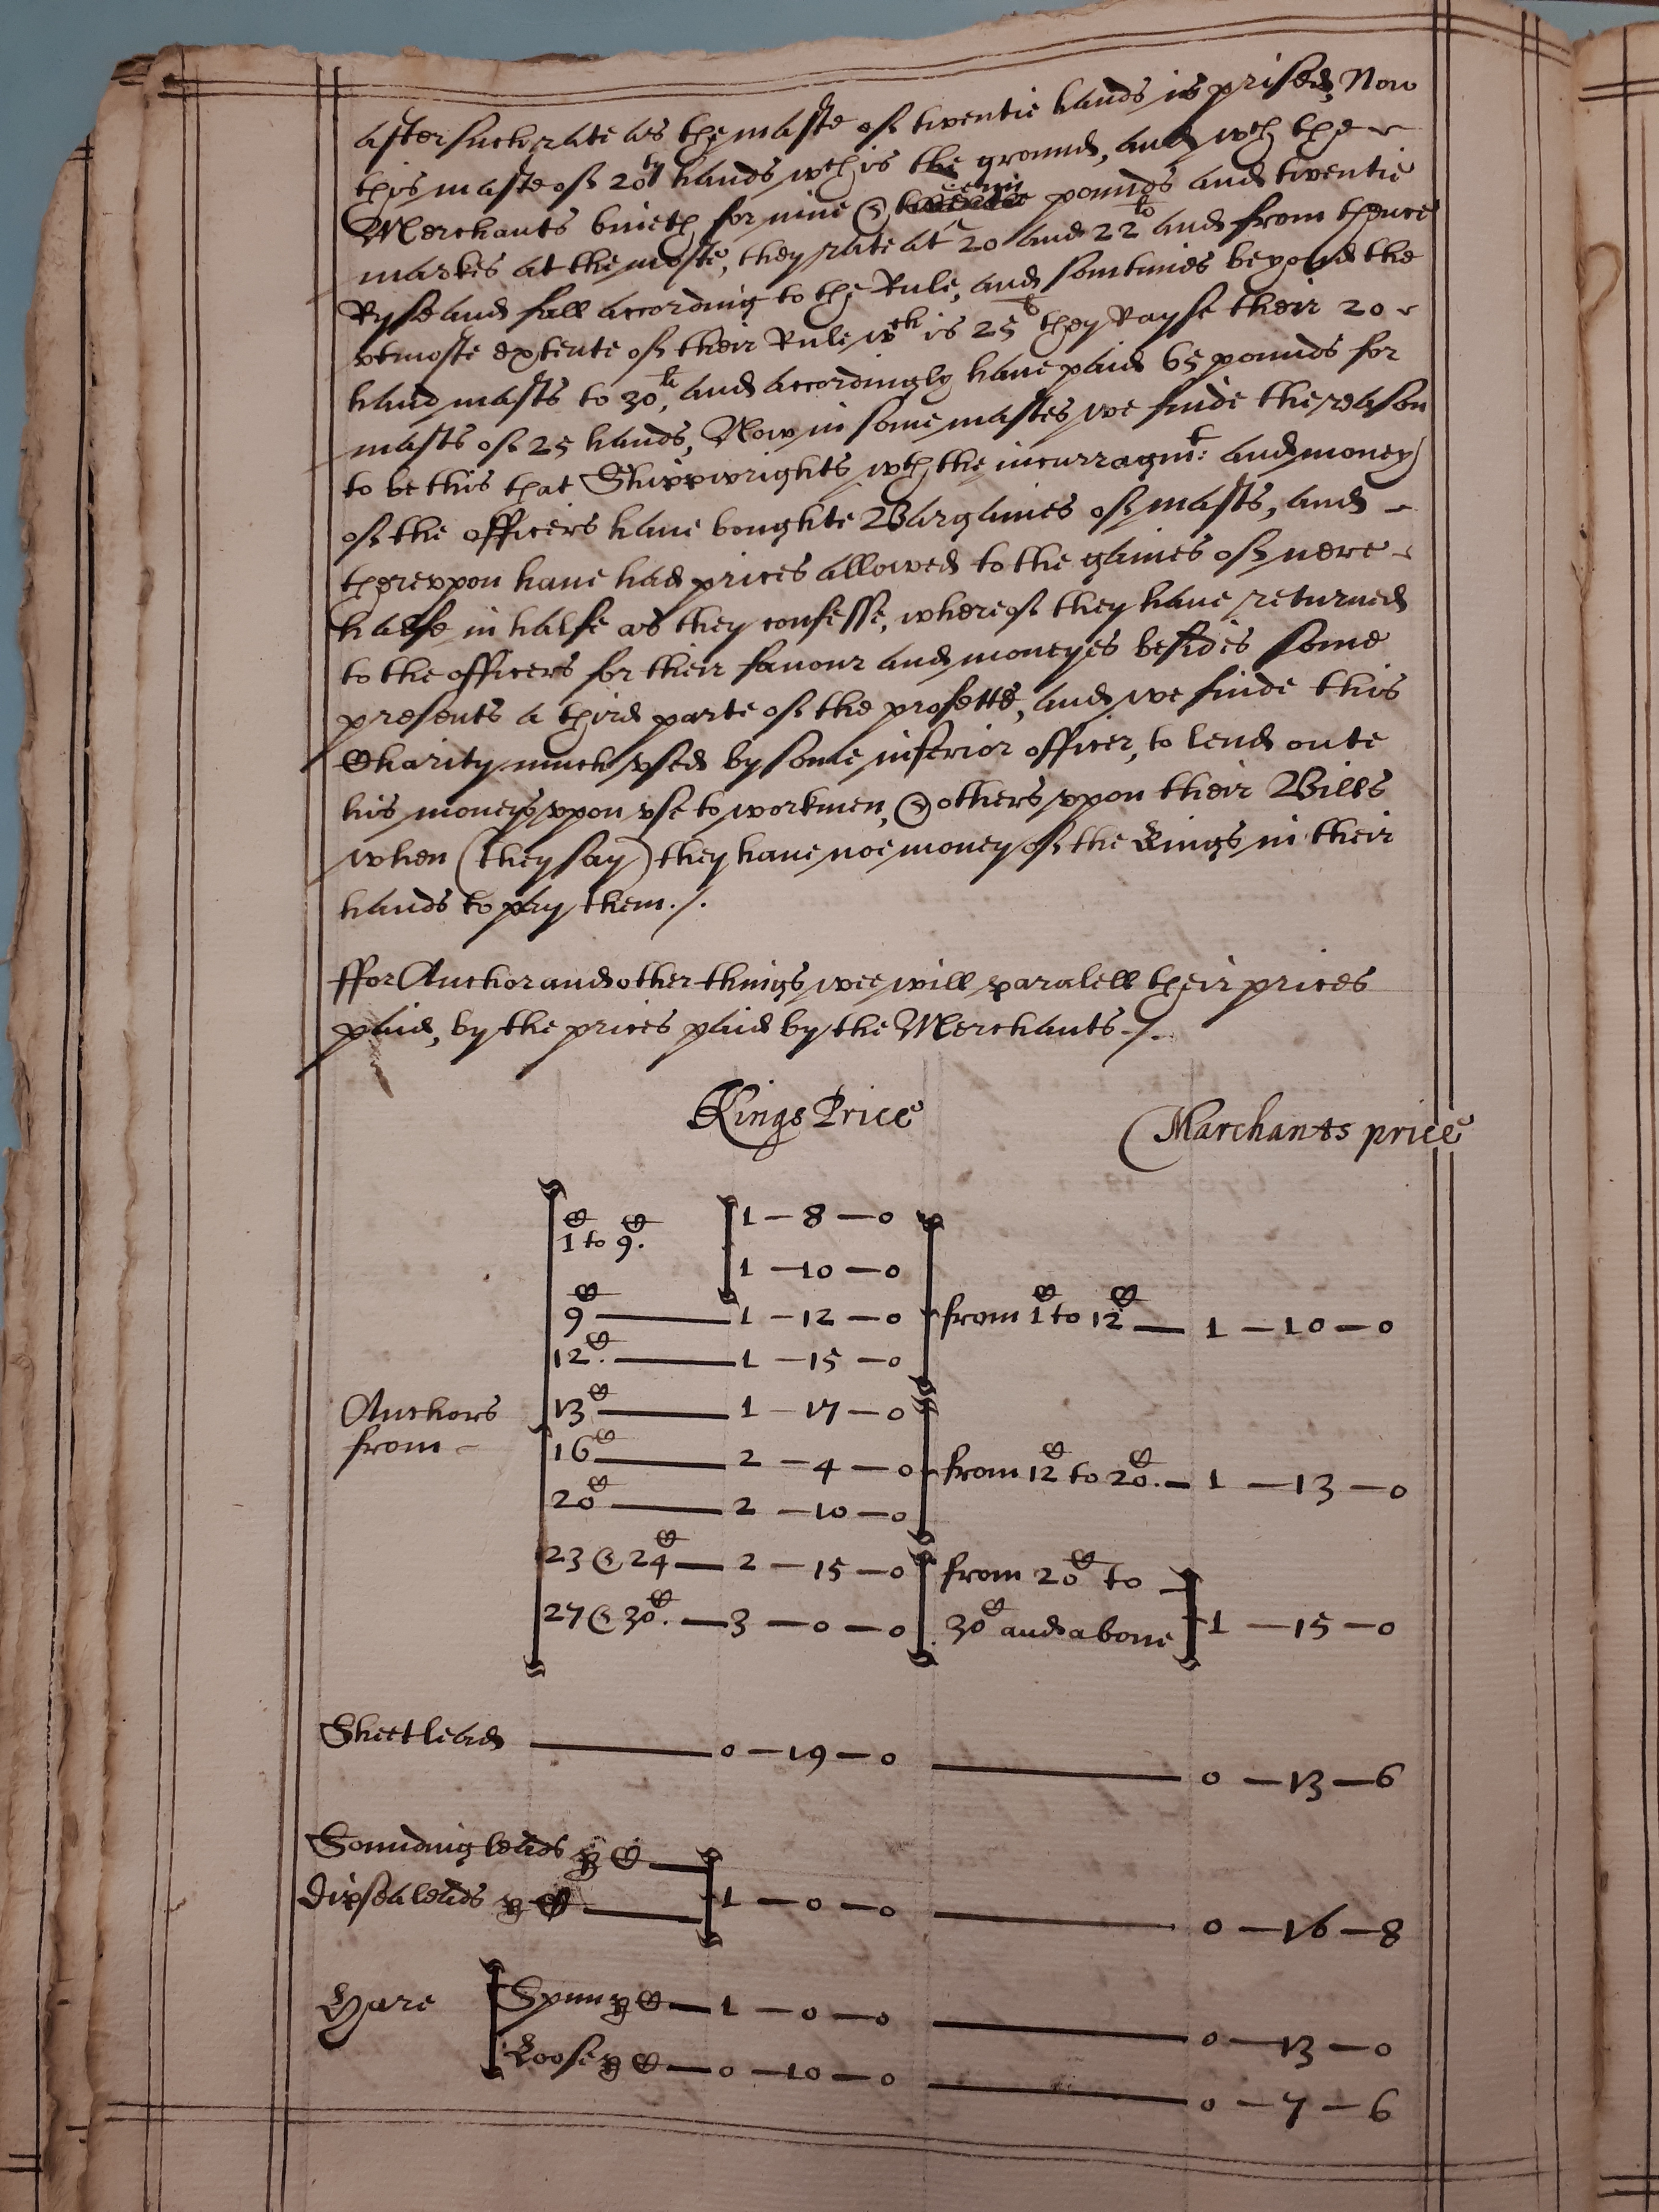 after such rate as the maste of twentie hands is prised, Now
this maste of 20ty hands wch is the ground, and wch the
Merchants buieth for nine & pounds and twentie
markes at the moste, they rate at 20 and 22li and from thence
Ryse and fall according to the Rule, and somtimes beyond the
vtmoste extente of their Rule wch is 25li they Rayse their 20
hand masts to 30li, and accordingly haue paid 65 pounds for
masts of 25 hands, Now in some mastes we finde the reason
to be this that Shippwrights wth the incurragmt: and money
of the officers haue boughte Bargaines of masts, and
therevpon haue had prices allowed to the gaines of nere
halfe in halfe as they confesse, whereof they haue returned
to the officers for their fauour and moneyes besides some
presents a third parte of the profette, and we finde this
Charity much vsed by some inferior officer, to lend oute
his moneys vpon vse to workmen, & others vpon their Bills
when (they say) they haue noe money of the Kings in their
hands to pay them ./.
ffor Anchor and other things wee will paralell their prices
paid, by the prices paid by the Merchants ./.
Kings Price Marchants price
C C
1 to 9. 1 – 8 – 0
1 – 10 – 0
9C 1 – 12 – 0 from 1C to 12C 1 – 10 – 0
12.C 1 – 15 – 0
Anchors from 13C 1 – 17 – 0
16C 2 – 4 – 0 from 12C to 20C. 1 – 13 – 0
20C 2 – 10 – 0
23 & 24C 2 – 15 – 0 from 20C to
27 & 30C. 3 – 0 – 0 30C and aboue 1 – 15 – 0
Sheet lead 0 – 19 – 0 0 – 13 – 6
Sounding leads p C
Dipsea leads p C 1 – 0 – 0 0 – 16 – 8
Hare Spun p C 1 – 0 – 0 0 – 13 – 0
Loose p C 0 – 10 – 0 0 – 7 – 6